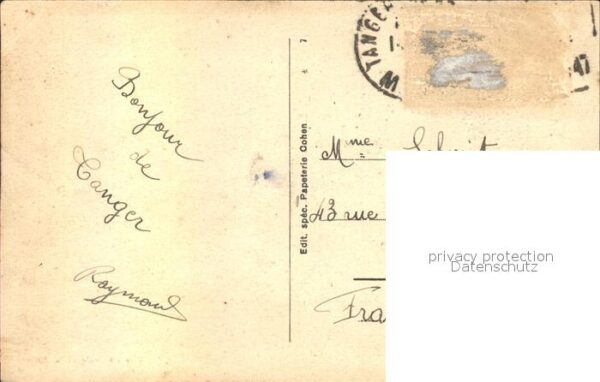 Bonjour
de
Tanger
Raymond
Edit. spéc. Papeterie Cohen
TANGER
47
Mme
43 rue
Fra
privacy protection
Datenschutz